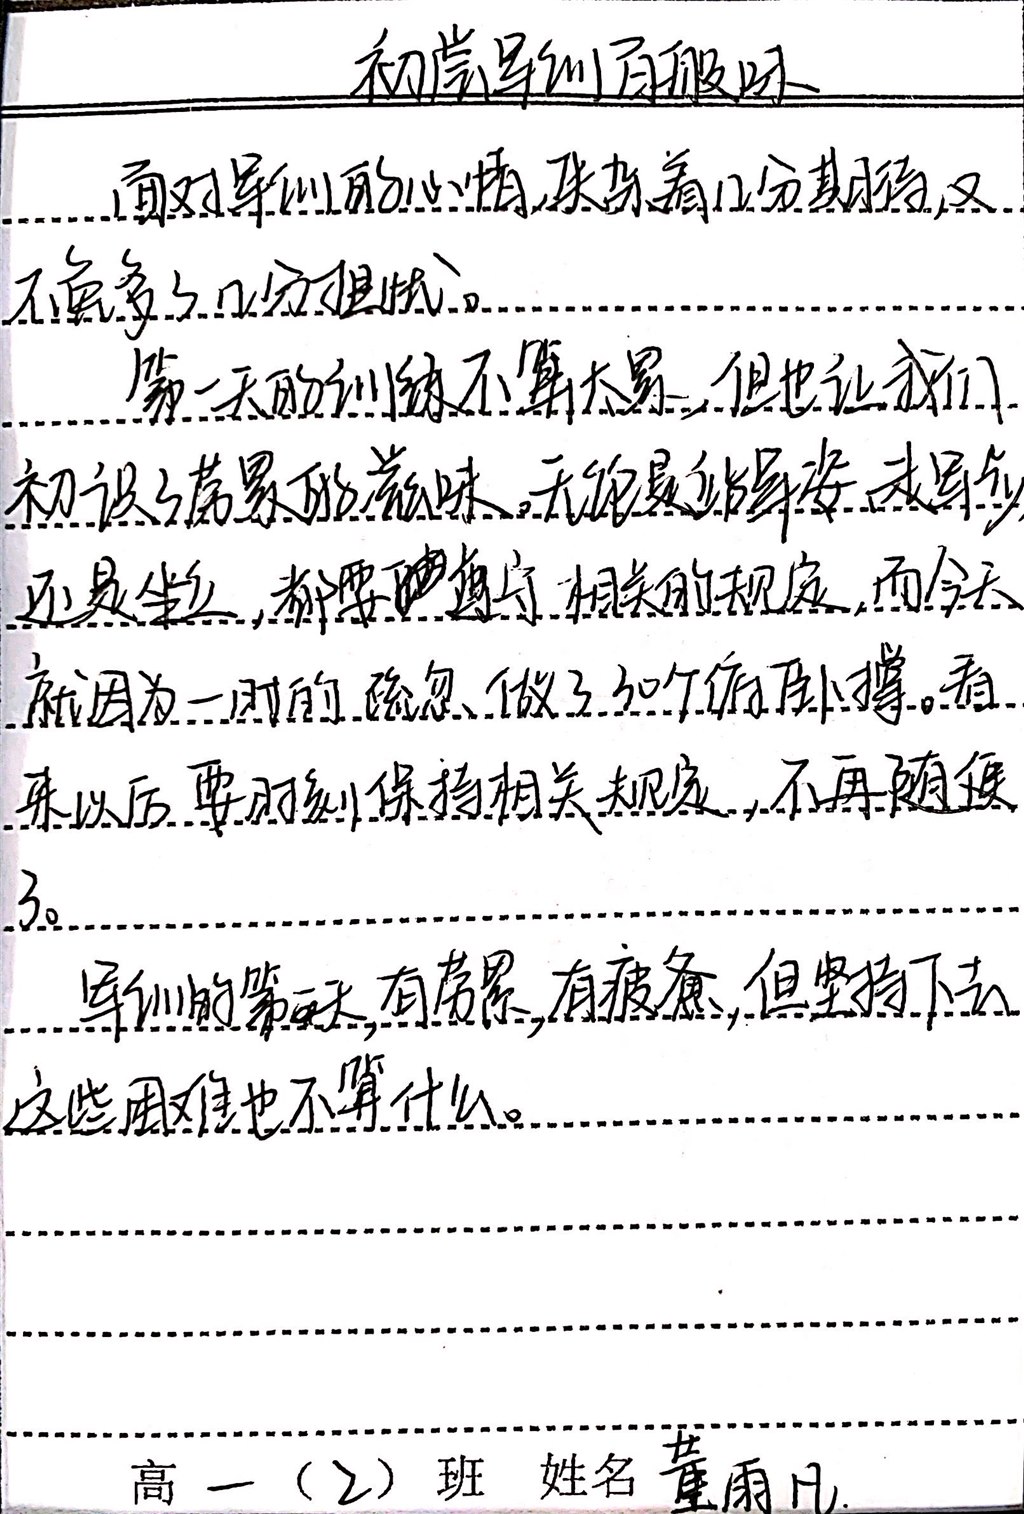 初尝军训百般味
面对军训的心情,夹杂着几分期待,又
不免多了几分担忧。
第一天的训练不算太累,但也让我们
初识了劳累的滋味。无论是站军姿、走军步,
还是坐立,都要遵守相关的规定,而今天
就因为一时的疏忽、做了30个俯卧撑。看
来以后要时刻保持相关规定,不再随便
了。
军训的第一天,有劳累,有疲惫,但坚持下去
这些困难也不算什么。
高一(2)班 姓名 董雨凡